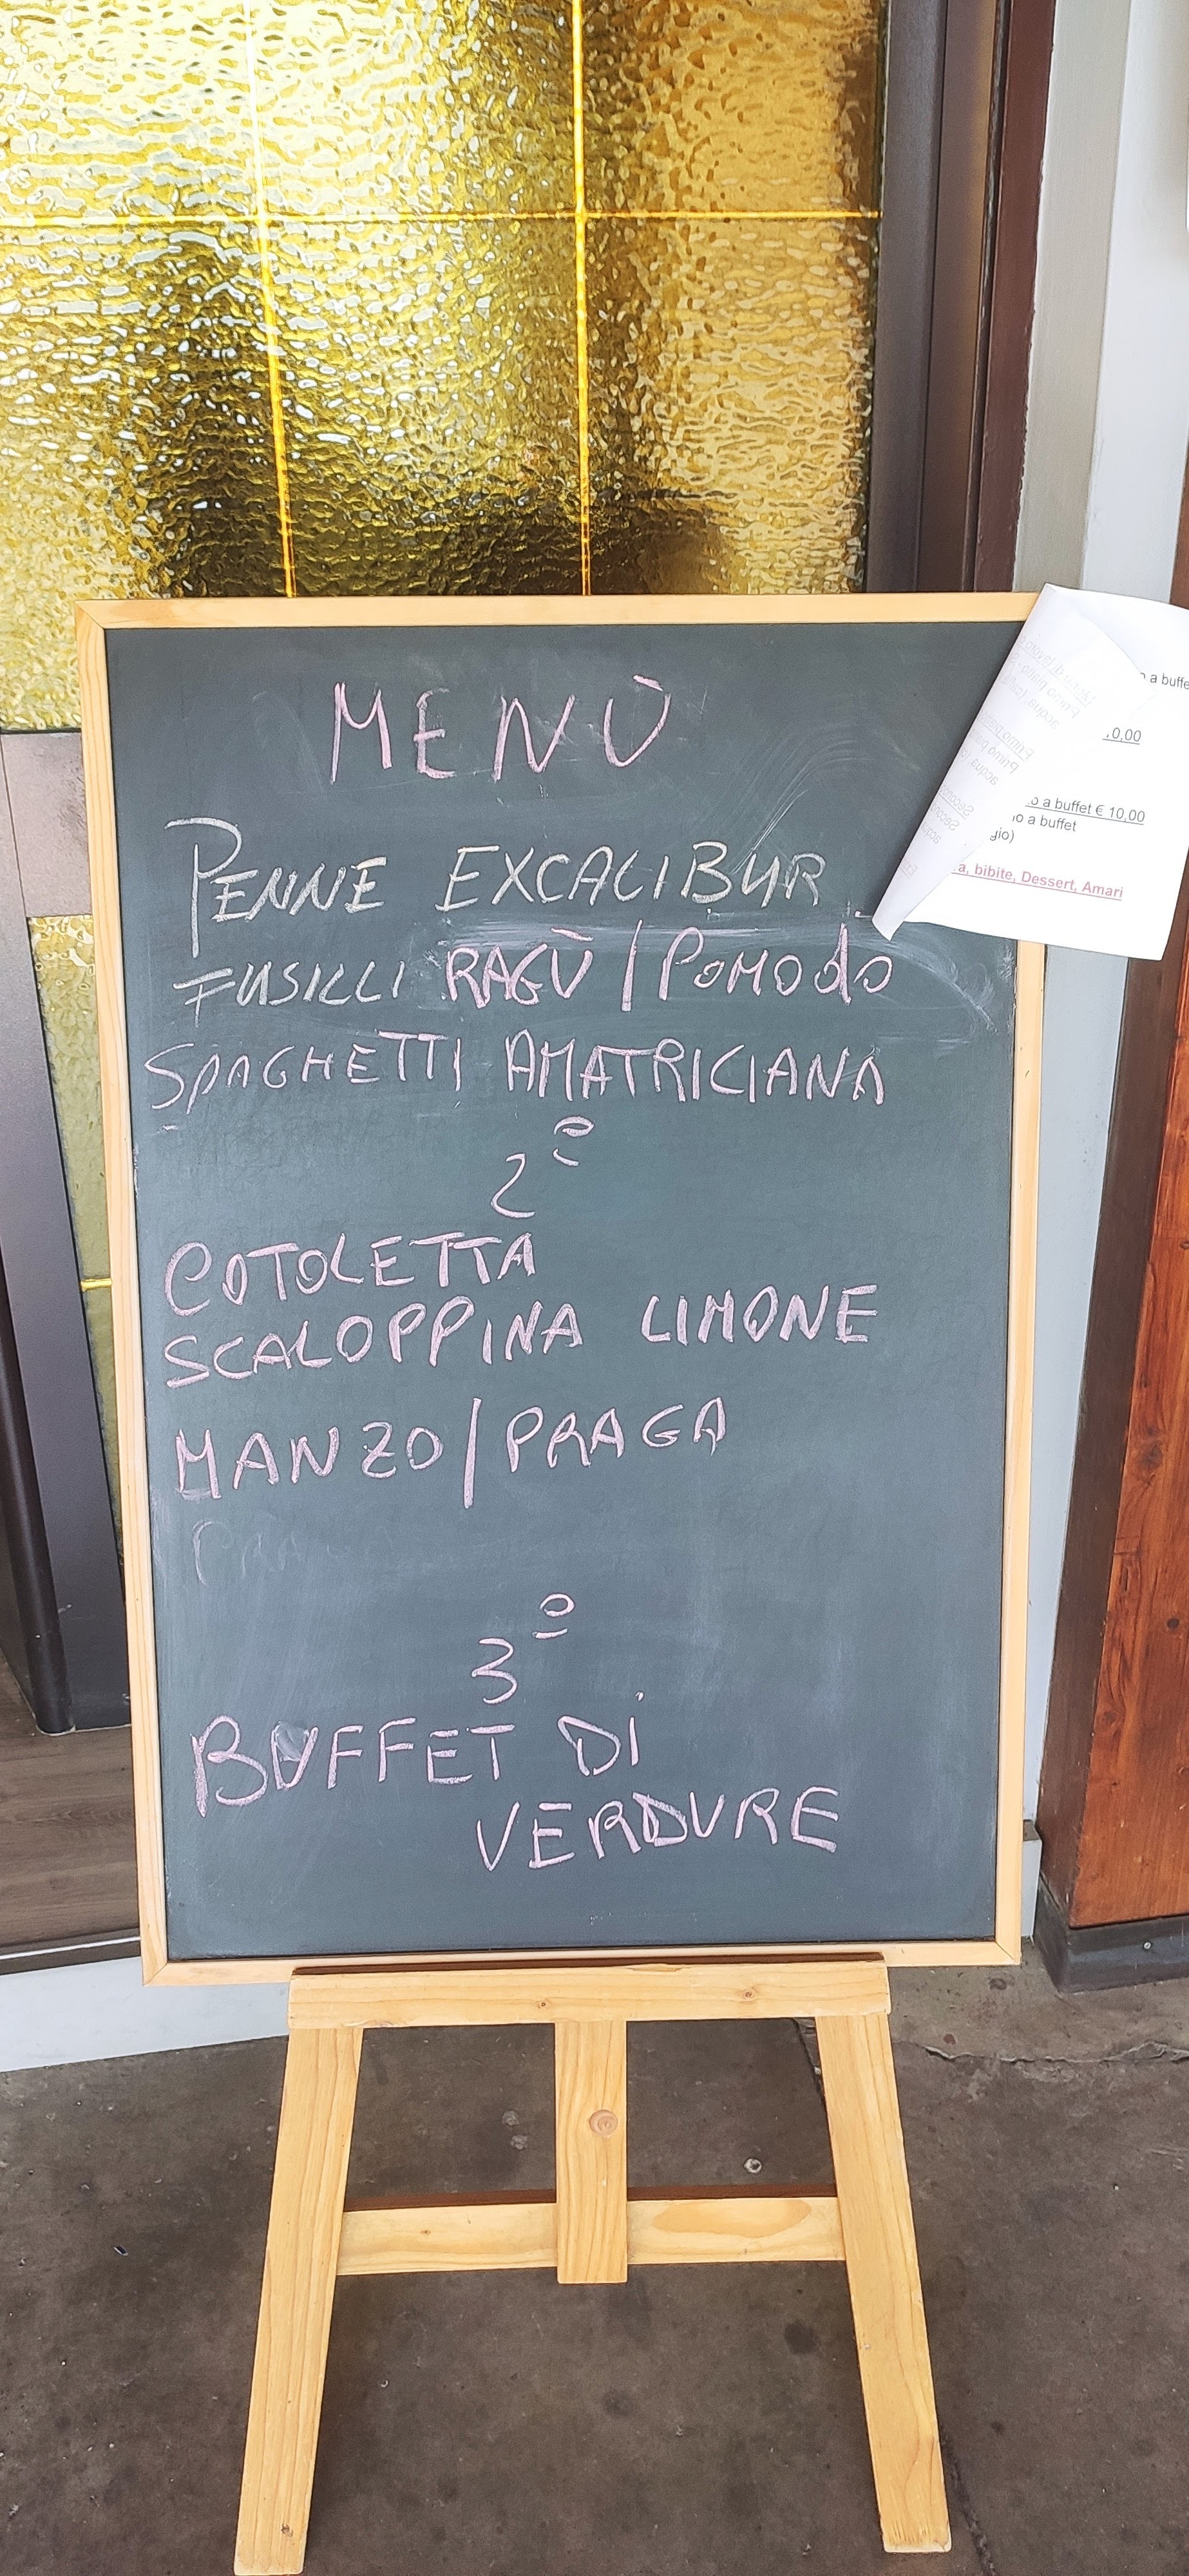 MENÙ
PENNE EXCALIBUR
FUSILLI RAGÙ / POMODO
SPAGHETTI AMATRICIANA
2º
COTOLETTA
SCALOPPINA LIMONE
MANZO / PRAGA
PRA
3º
BUFFET DI
VERDURE
a buffe
0,00
o a buffet € 10,00
a buffet
gio)
a, bibite, Dessert, Amari